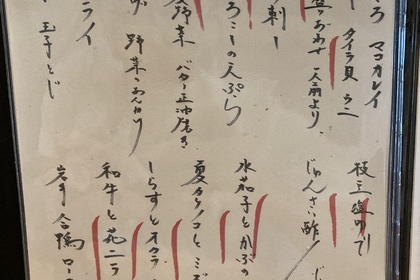 ろ マコガレイ
タイラ貝 うに
盛りあわせ 一人前より
刺し
ろこしの天ぷら
野菜 バター正油焼き
野菜あんかけ
ライ
玉子とじ
枝豆塩ゆで
じゅんさい酢
水茄子とかぶの
夏タケノコとミズ
しらすとオクラ
和牛と花ニラ
岩手合鴨ロー